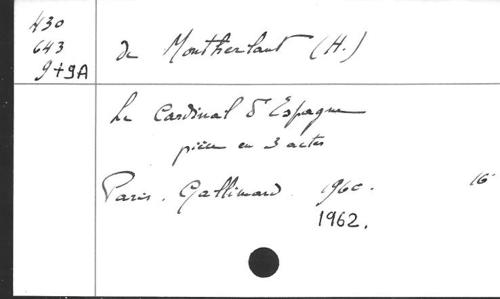 430
643
9+9A
de Montherlant (H.)
Le Cardinal d'Espagne
pièce en 3 actes
Paris. Gallimard. 1960. 16
1962.